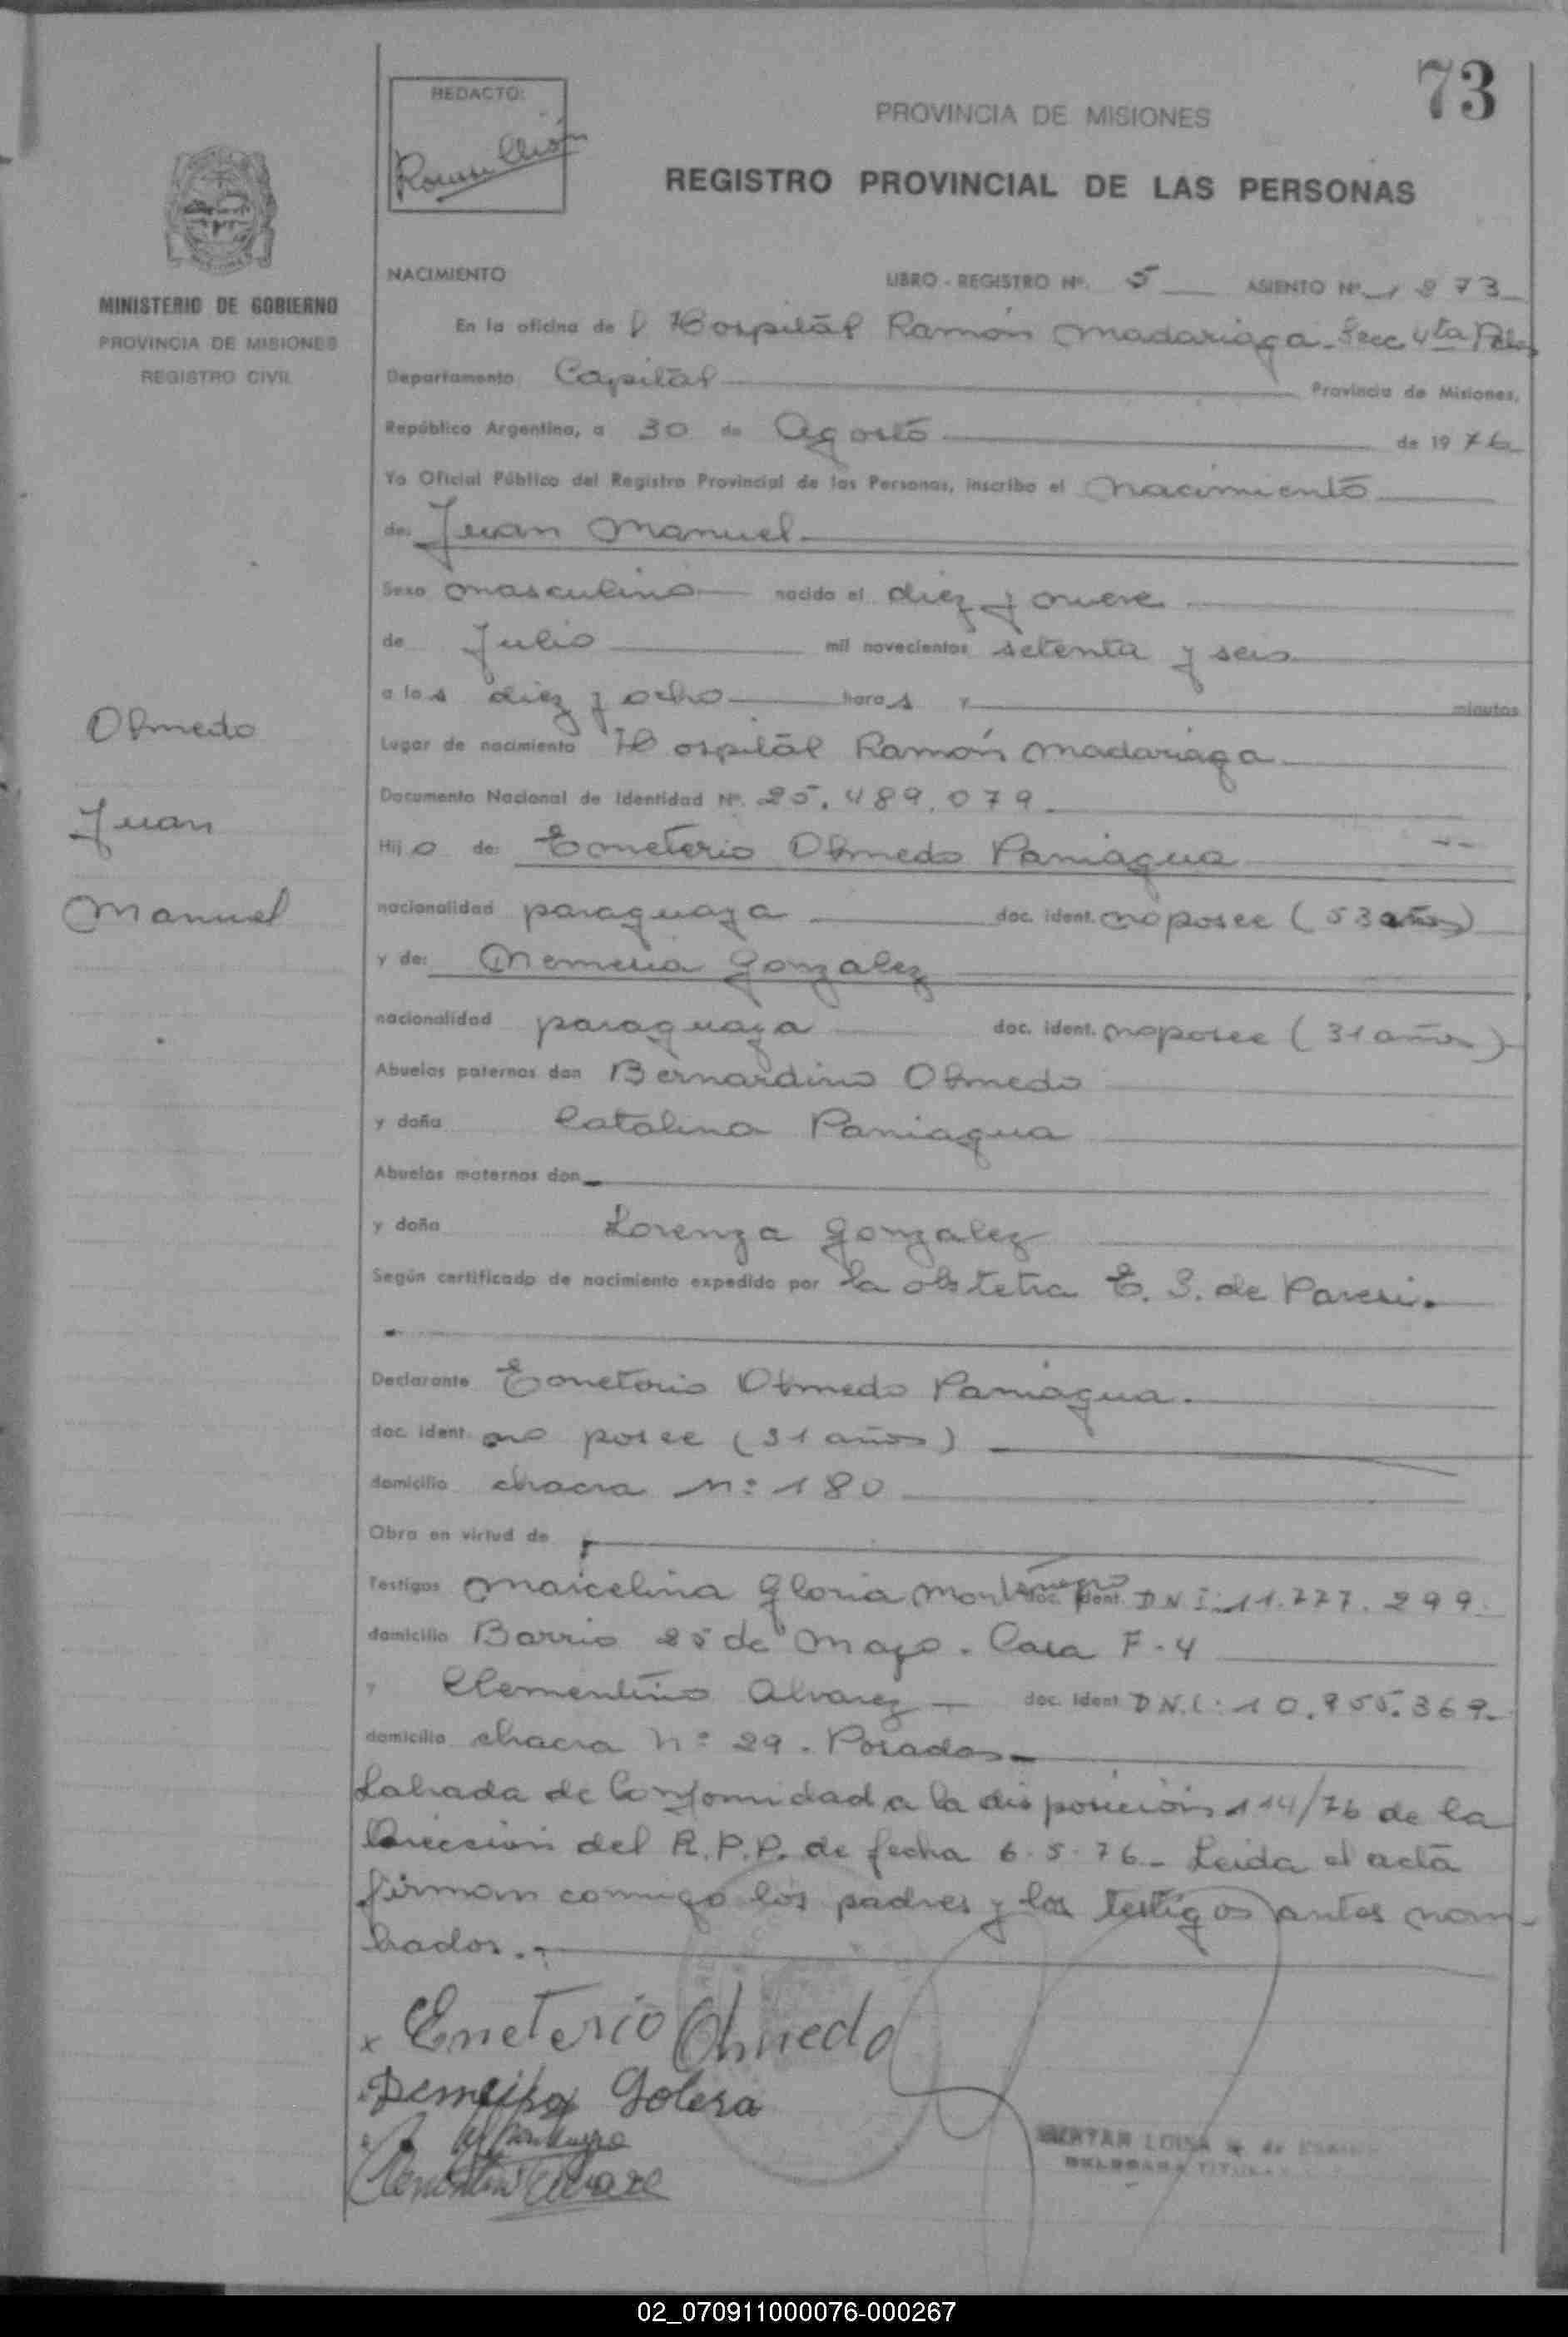 73
REDACTO:
PROVINCIA DE MISIONES
REGISTRO PROVINCIAL DE LAS PERSONAS
MINISTERIO DE GOBIERNO
PROVINCIA DE MISIONES
REGISTRO CIVIL
NACIMIENTO LIBRO - REGISTRO Nº. 5 ASIENTO Nº 1873
En la oficina de l Hospital Ramón Madariaga - Secc 4ta Pdas
Departamento Capital Provincia de Misiones,
República Argentina, a 30 de Agosto de 1976
Yo Oficial Público del Registro Provincial de las Personas, inscribo el Nacimiento
de: Juan Manuel
Sexo masculino nacido el diez y nueve
de Julio mil novecientos setenta y seis
a las diez y ocho horas y minutos
Lugar de nacimiento Hospital Ramón Madariaga
Documento Nacional de Identidad Nº. 25.489.079.
Hijo de: Emeterio Olmedo Paniagua
nacionalidad paraguaya doc. ident. no posee (53 años)
y de: Nemecia Gonzalez
nacionalidad paraguaya doc. ident. no posee (31 años)
Abuelos paternos don Bernardino Olmedo
y doña Catalina Paniagua
Abuelos maternos don
y doña Lorenza Gonzalez
Según certificado de nacimiento expedido por la obstetra E. S. de Paresi.
Declarante Emeterio Olmedo Paniagua.
doc. ident. no posee (31 años)
domicilio chacra Nº 180
Obra en virtud de
Testigos Marcelina Gloria Montenegro doc. ident. DNI: 11.777.299.
domicilio Barrio 25 de Mayo. Casa F-4
y Clementino Alvarez doc. ident. D.N.I: 10.955.369.
domicilio chacra Nº 29. Posadas
Labrada de Conformidad a la disposición 114/76 de la
Dirección del R.P.P. de fecha 6.5.76. Leida el acta
firman conmigo los padres y los testigos antes nom-
brados.
Olmedo
Juan
Manuel
x Emeterio Olmedo
02_070911000076-000267